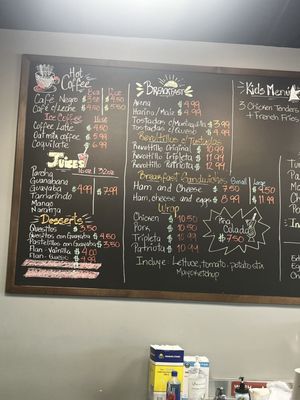 Hot
Coffee
8oz 12oz
Café Negro
Café c/Leche 4.50 5.50
Ice Coffee 16oz
Coffee Latte $4.50
Oatmilk Coffee $5.99
Coquilatte 6.99
Juices
16oz 32oz
Parcha
Guanabana
Guayaba $4.99 $7.99
Tamarindo
Mango
Naranja
Desserts
Quesitos $3.50
Quesitos con Guayaba $4.50
Pastelillos con Guayaba $3.50
Flan - Vainilla $4.00
Flan - Queso
Breakfast
Avena $4.99
Harina / Maiz $4.99
Tostadas c/Mantequilla $3.99
Tostadas c/Queso $4.99
Revoltillo c/Tostadas
Revoltillo Original $10.99
Revoltillo Tripleta $11.99
Revoltillo Patriota $12.99
Breakfast Sandwiches Small Large
Ham and Cheese $7.50 $9.50
Ham, cheese and eggs $8.99 $11.99
Wrap
Chicken $10.50
Pork $10.50
Tripleta $10.99
Patriota $10.99
Incluye: Lettuce, tomato, potato stix
Mayoketchup
Piña
Colada
$7.50
Kids Menu
3 Chicken Tenders
+ French Fries